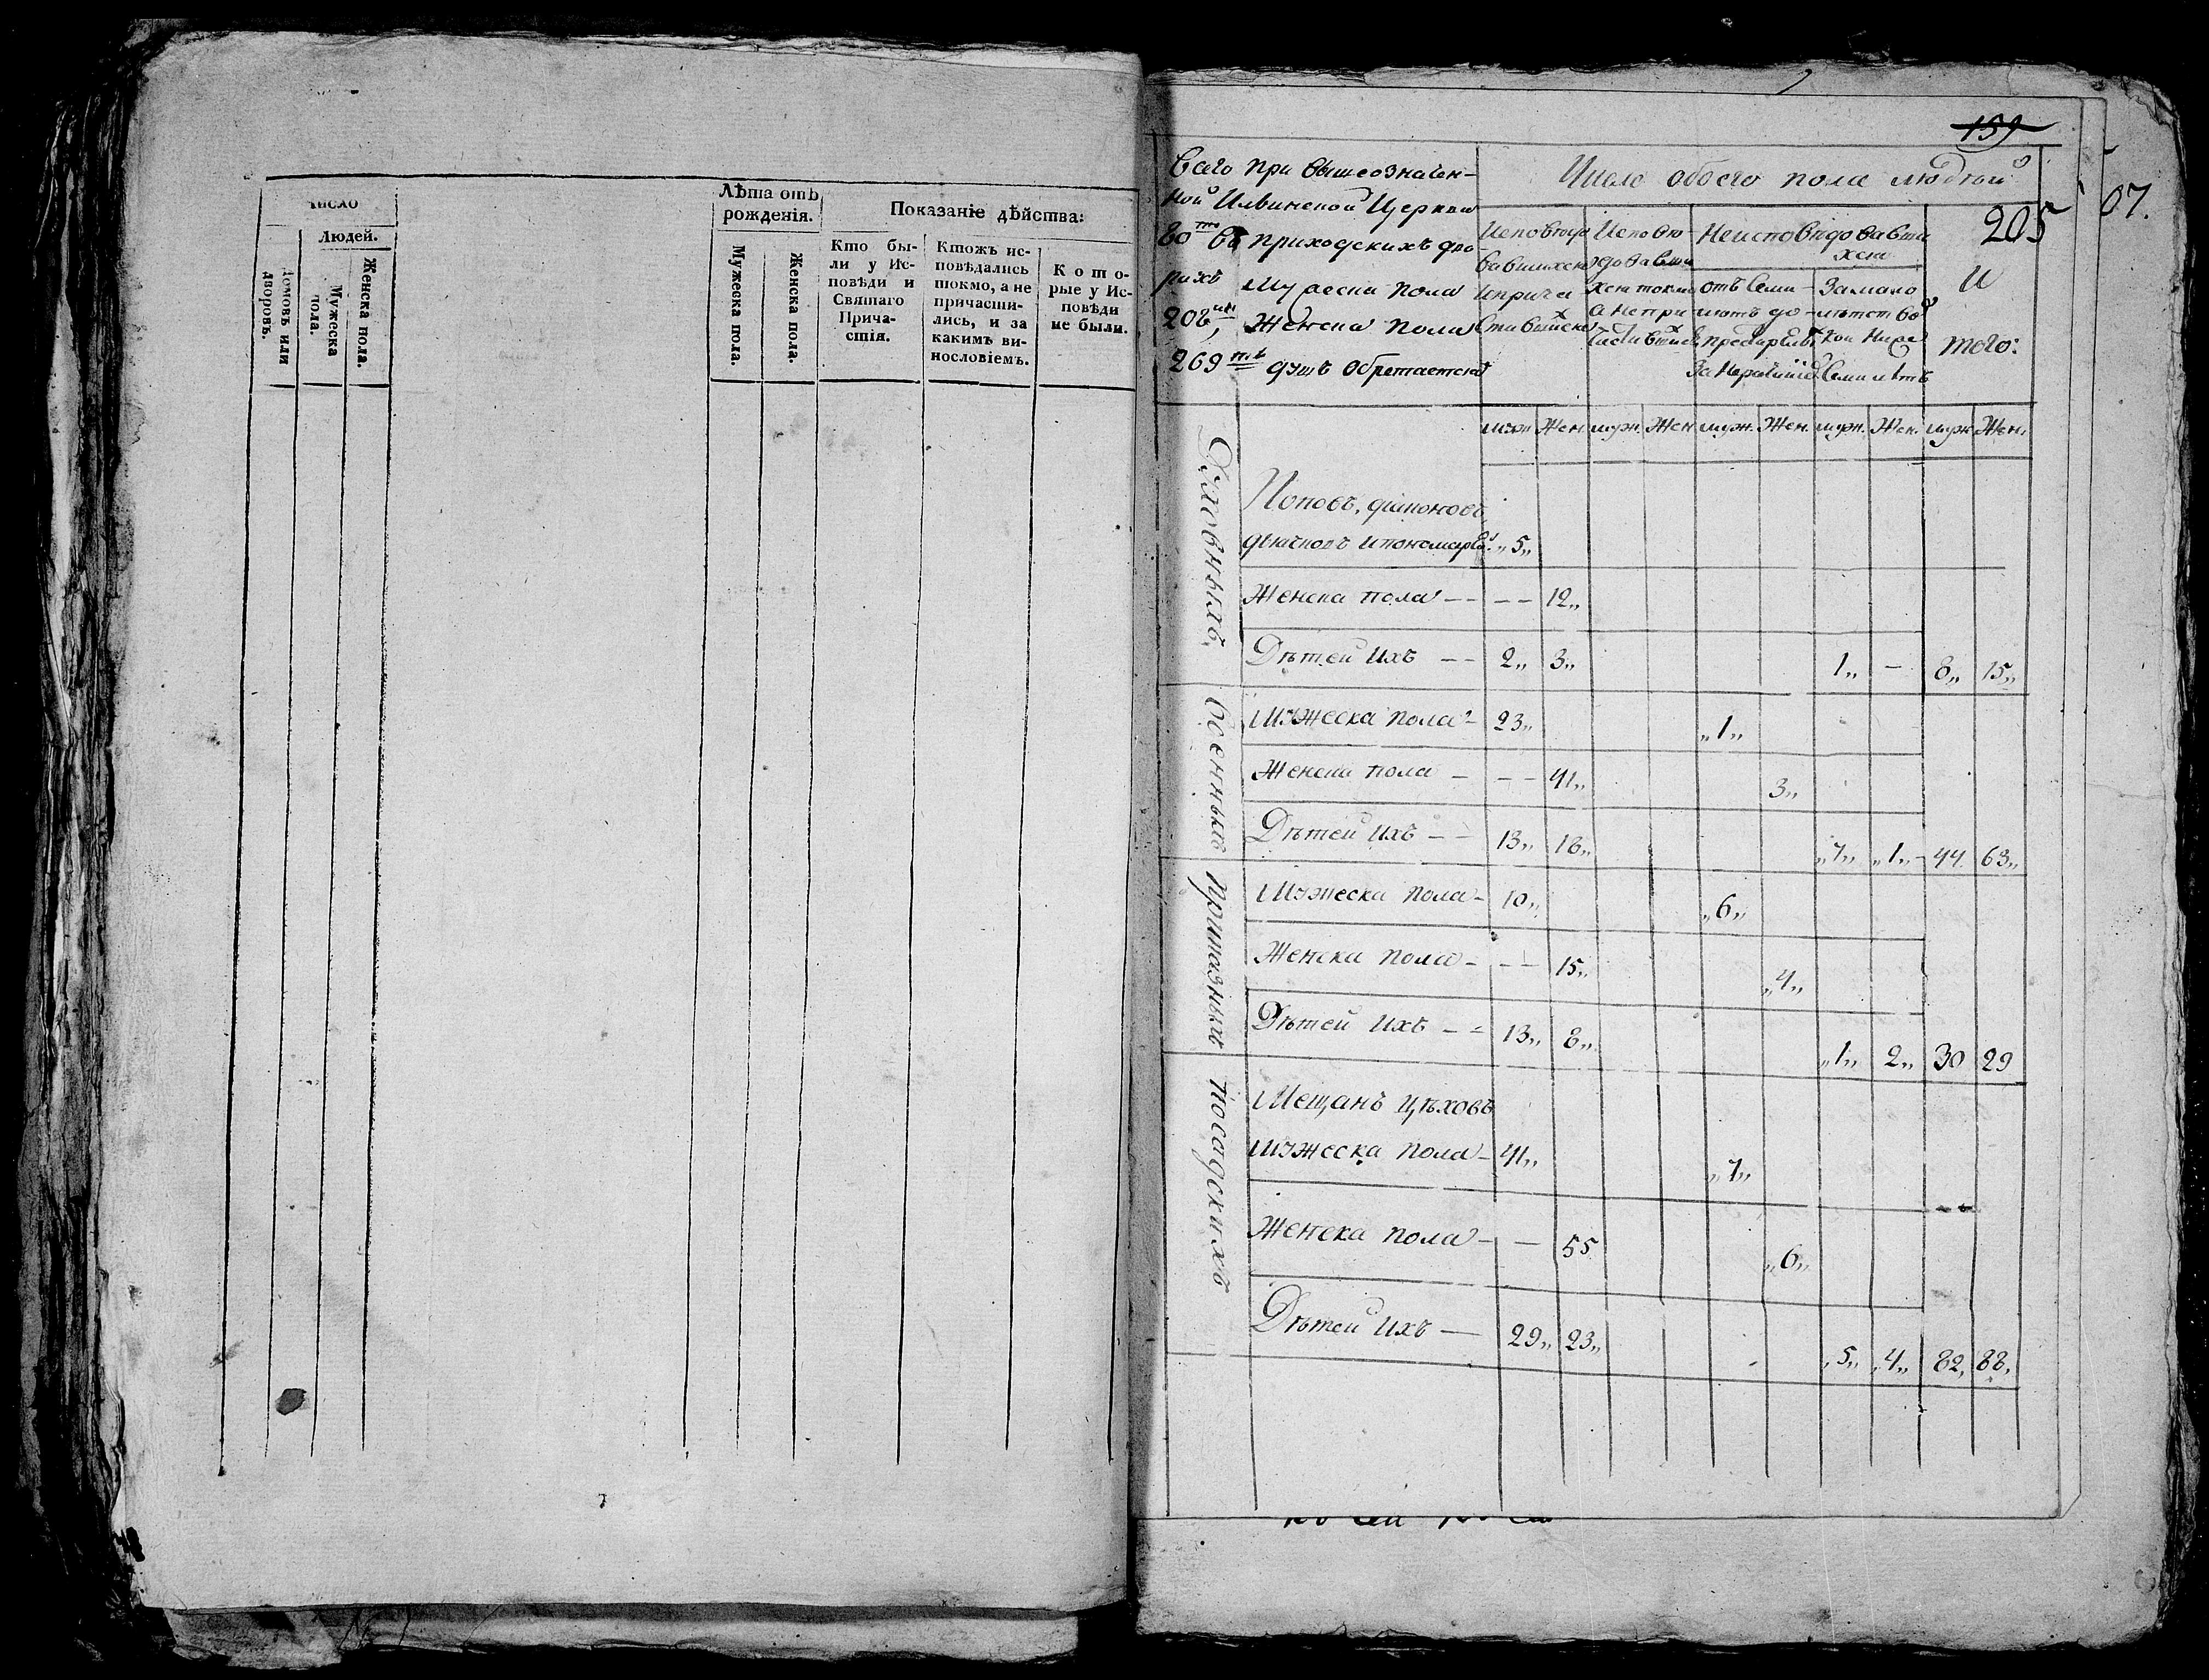 Число
Людей.
Домовъ или дворовъ.
Мужеска пола.
Женска пола.
Лѣта отъ рожденія.
Мужеска пола.
Женска пола.
Показаніе дѣйства:
Кто бы-
ли у Ис-
повѣди и
Святаго
Прича-
стія.
Ктожъ ис-
повѣдались
токмо, а не
причасти-
лись, и за
какимъ ви-
нословіемъ.
К о т о-
рые у Ис-
повѣди
не были.
159
205
07.
Всего при вышеозначен-
ной Илвинской Церкви
80 въ приходскихъ дво-
рахъ Мужеска пола
208, Женска пола
269 душъ обретается
Число обоего пола людѣй
Исповѣдо
вавшихся
и прича
стившихся
Исповѣ-
довавши
хся токмо
а не при
частивших
Неисповѣдовавши
хся
отъ Семи-
лѣтъ до
престарѣлых
За мало
лѣтствo
И
того:
муж. Жен. муж. Жен. муж. Жен. муж. Жен. муж. Жен.
Духовныхъ
Поповъ, діаконовъ
дьячковъ и пономарѣй „5„
Женска пола – – – – 12„
Дѣтей ихъ – – 2„ 3„ 1„ – 8„ 15„
Военныхъ
Мужеска пола – 23„ „1„
Женска пола – – – 41„ 3„
Дѣтей ихъ – – 13„ 18„ „7„ „1„ 44 63„
Приказныхъ
Мужеска пола – 10„ „6„
Женска пола – – – 15„ „4„
Дѣтей ихъ – – 13„ 8„ „1„ 2„ 30 29
Посадскихъ
Мещанъ цѣховъ
мужеска пола – 41„ „7„
Женска пола – – 55 „6„
Дѣтей ихъ – 29„ 23„ „5„ „4„ 82, 88,